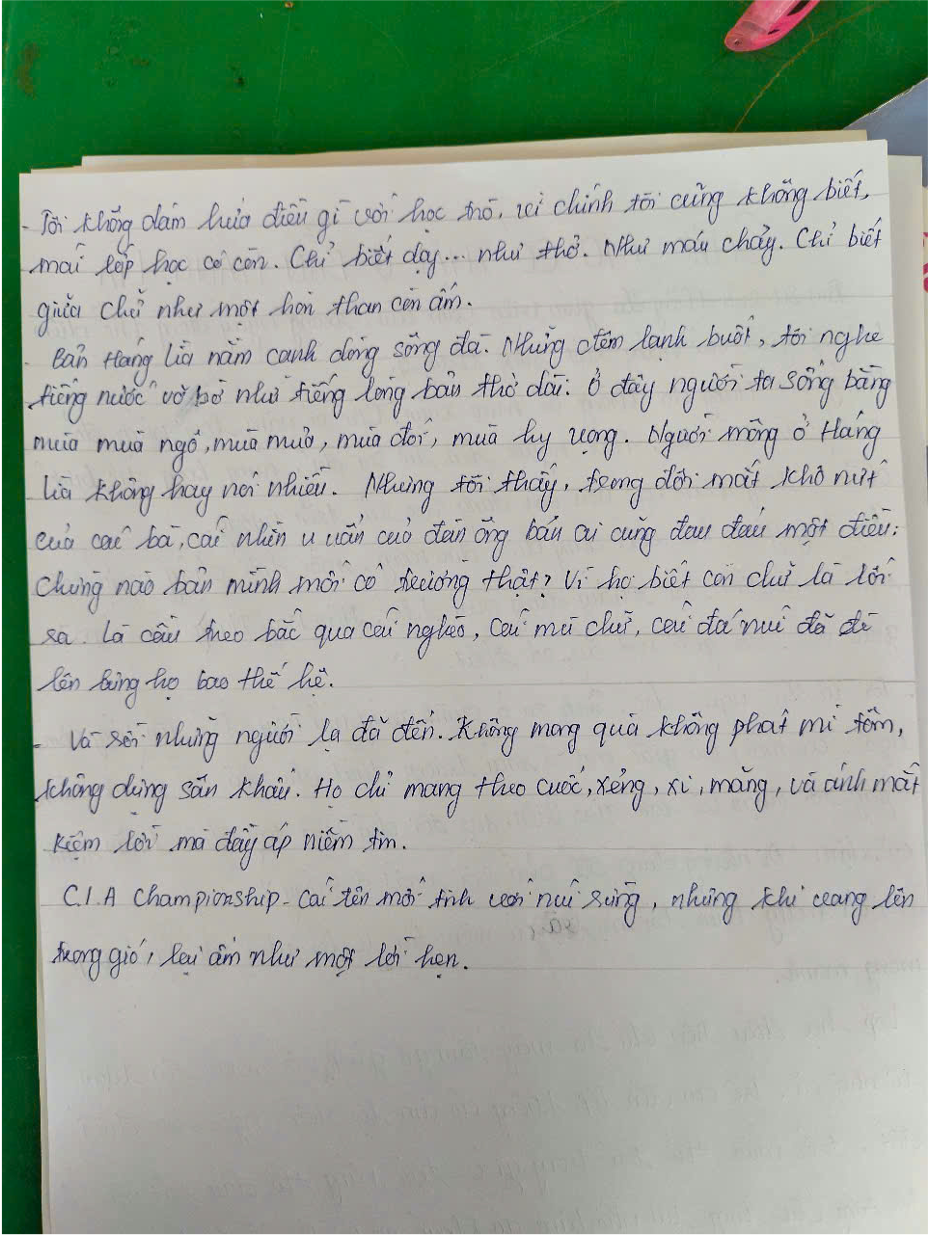 - Tôi không dám hứa điều gì với học trò, vì chính tôi cũng không biết,
mai lớp học có còn. Chỉ biết dạy... như thở. Như máu chảy. Chỉ biết
giữa chữ như một hòn than còn ấm.
- Bản Háng Lìa nằm cạnh dòng sông đà. Những đêm lạnh buốt, tôi nghe
tiếng nước vỗ bờ như tiếng lòng bản thở dài. Ở đây người ta sống bằng
mùa mùa ngô, mùa mưa, mùa đói, mùa hy vọng. Người mông ở Háng
Lìa không hay nói nhiều. Nhưng tôi thấy, trong đôi mắt khô nứt
của các bà, cái nhìn u uẩn của đàn ông bản ai cũng đau đáu một điều:
Chừng nào bản mình mới có trường thật? Vì họ biết con chữ là lối
ra. Là cầu treo bắc qua cái nghèo, cái mù chữ, cái đá núi đã đè
lên lưng họ bao thế hệ.
- Và rồi những người lạ đã đến. Không mang quà không phát mì tôm,
không dựng sân khấu. Họ chỉ mang theo cuốc, xẻng, xi, măng, và ánh mắt
kiệm lời mà đầy áp niềm tin.
C.I.A Championship - cái tên mới tinh với núi rừng, nhưng khi vang lên
trong gió, lại ấm như một lời hẹn.